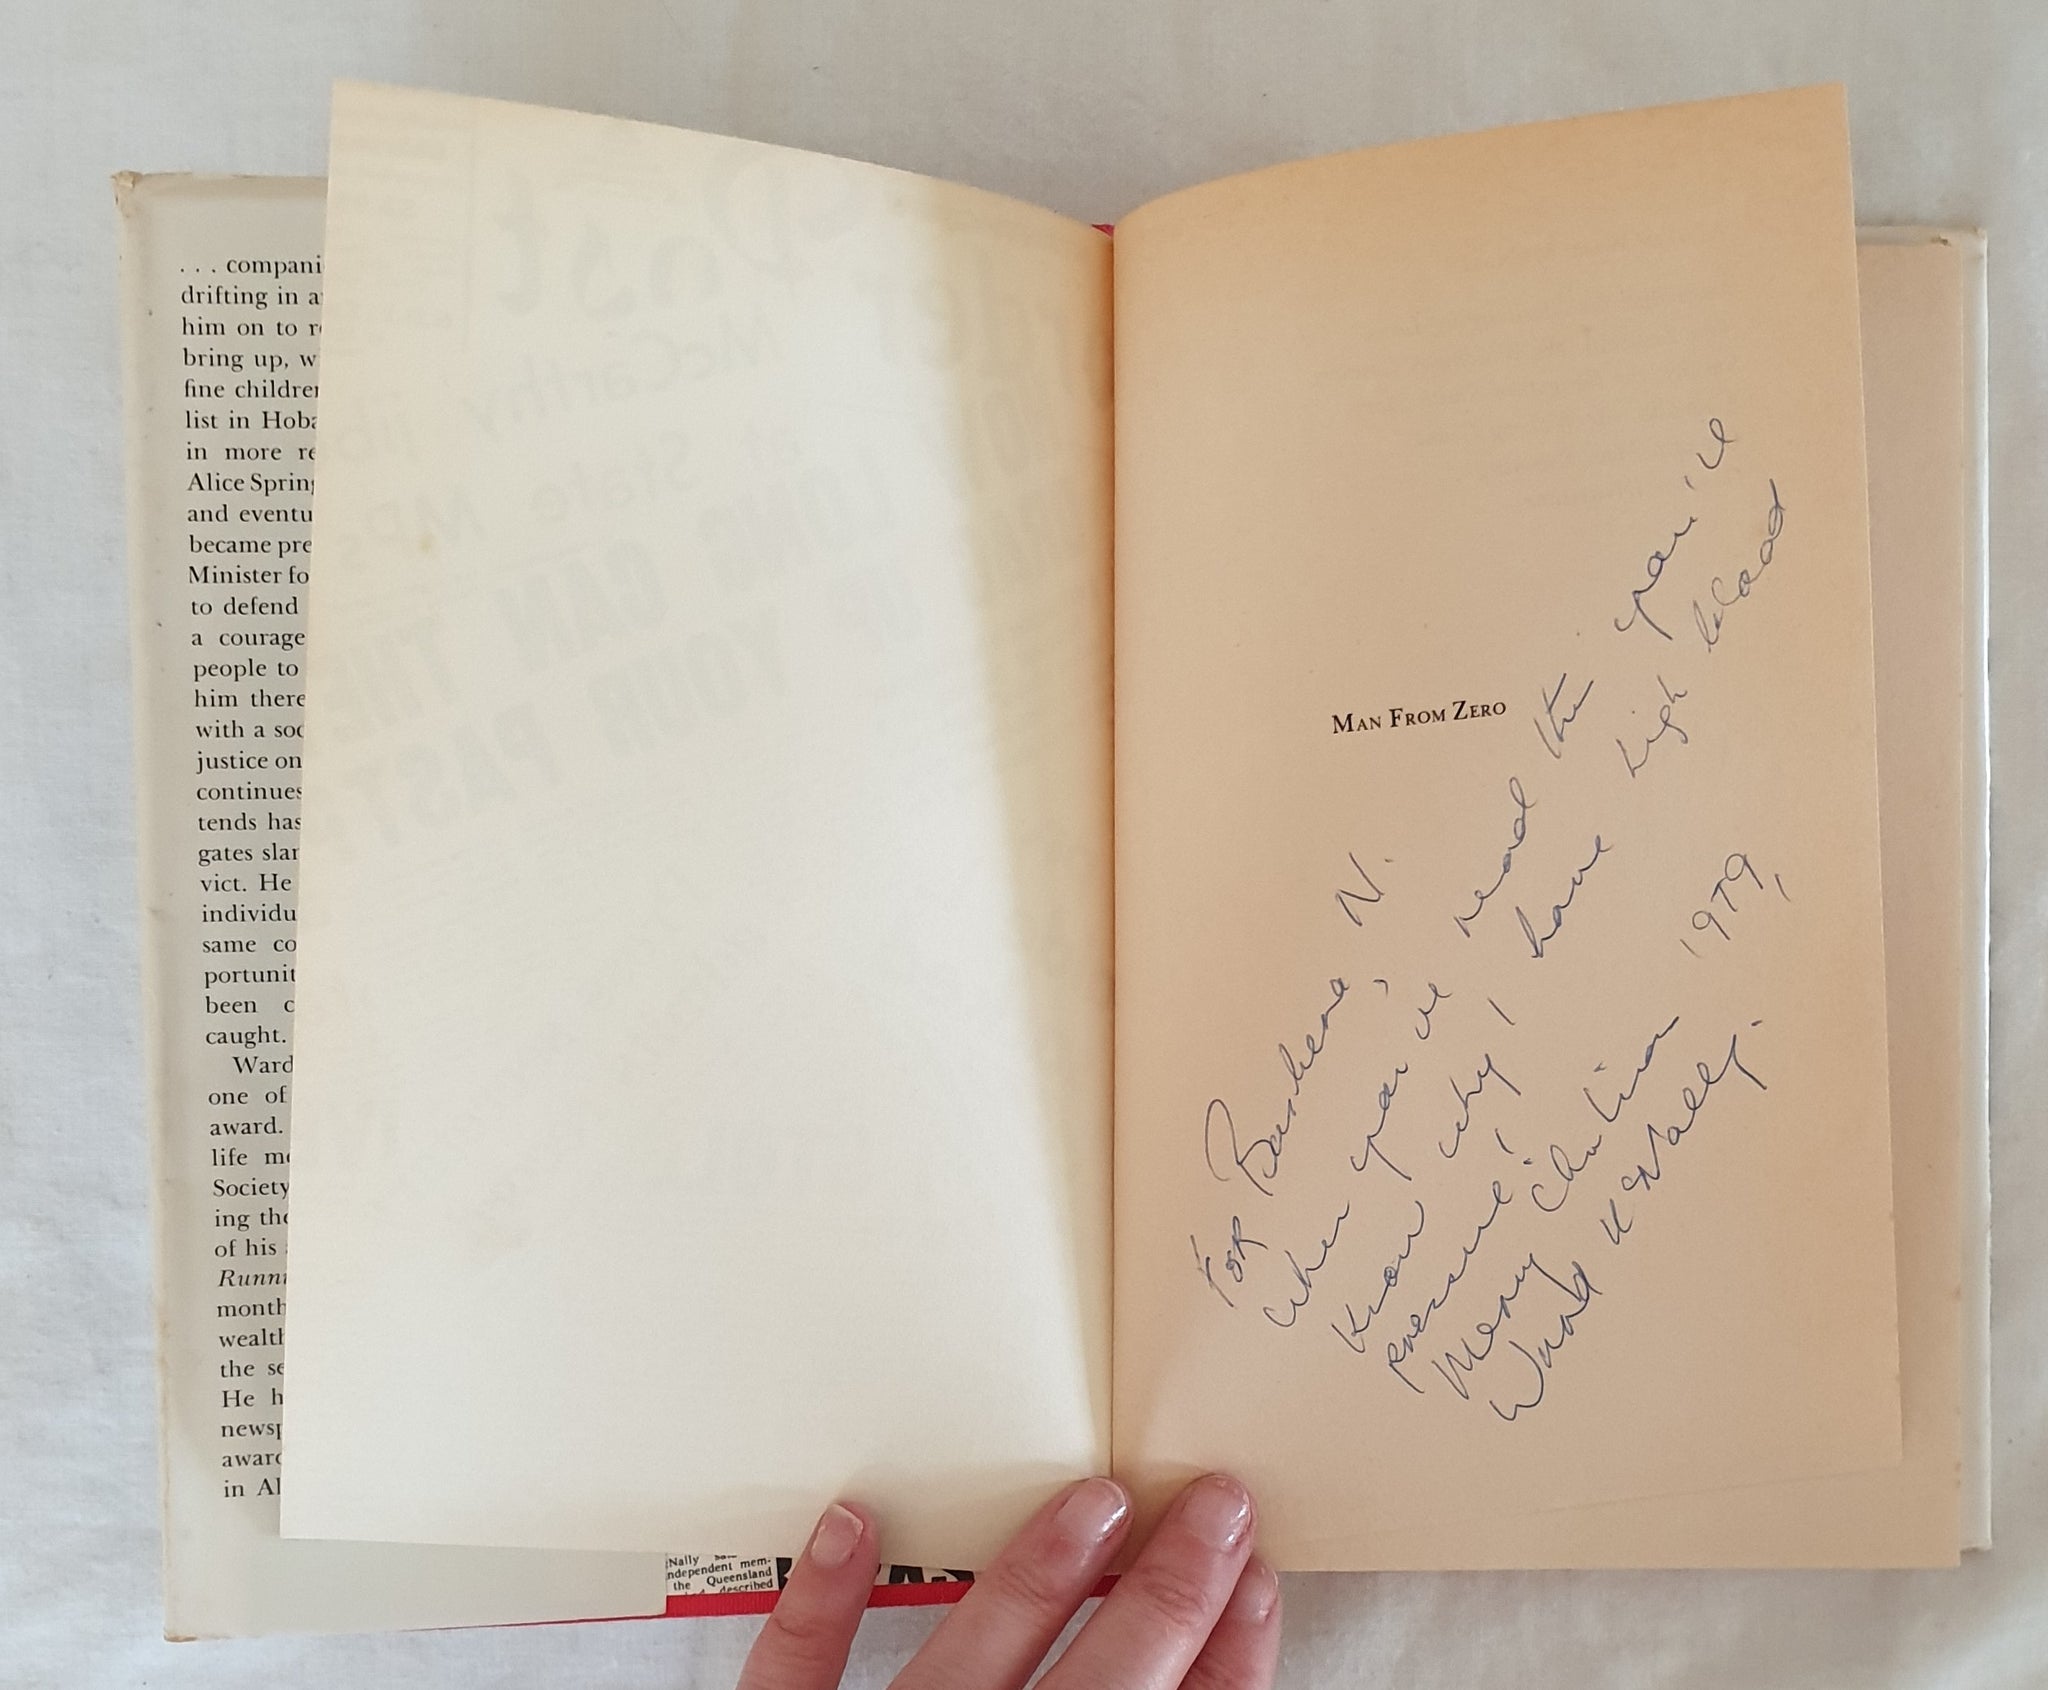 . . . compani
drifting in a
him on to r
bring up, w
fine children
list in Hoba
in more re
Alice Spring
and eventu
became pre
Minister fo
to defend
a courage
people to
him there
with a soc
justice on
continues
tends has
gates slan
vict. He
individu
same co
portunit
been c
caught.
Ward
one of
award.
life me
Society
ing the
of his
Runni
month
wealth
the se
He h
newsp
award
in Al
Nally
ndependent mem-
the Queensland
described
MAN FROM ZERO
FOR Barbara N.
When you've read this you'll
know why I have high blood
pressure!
Merry Christmas 1979,
Ward McNally.